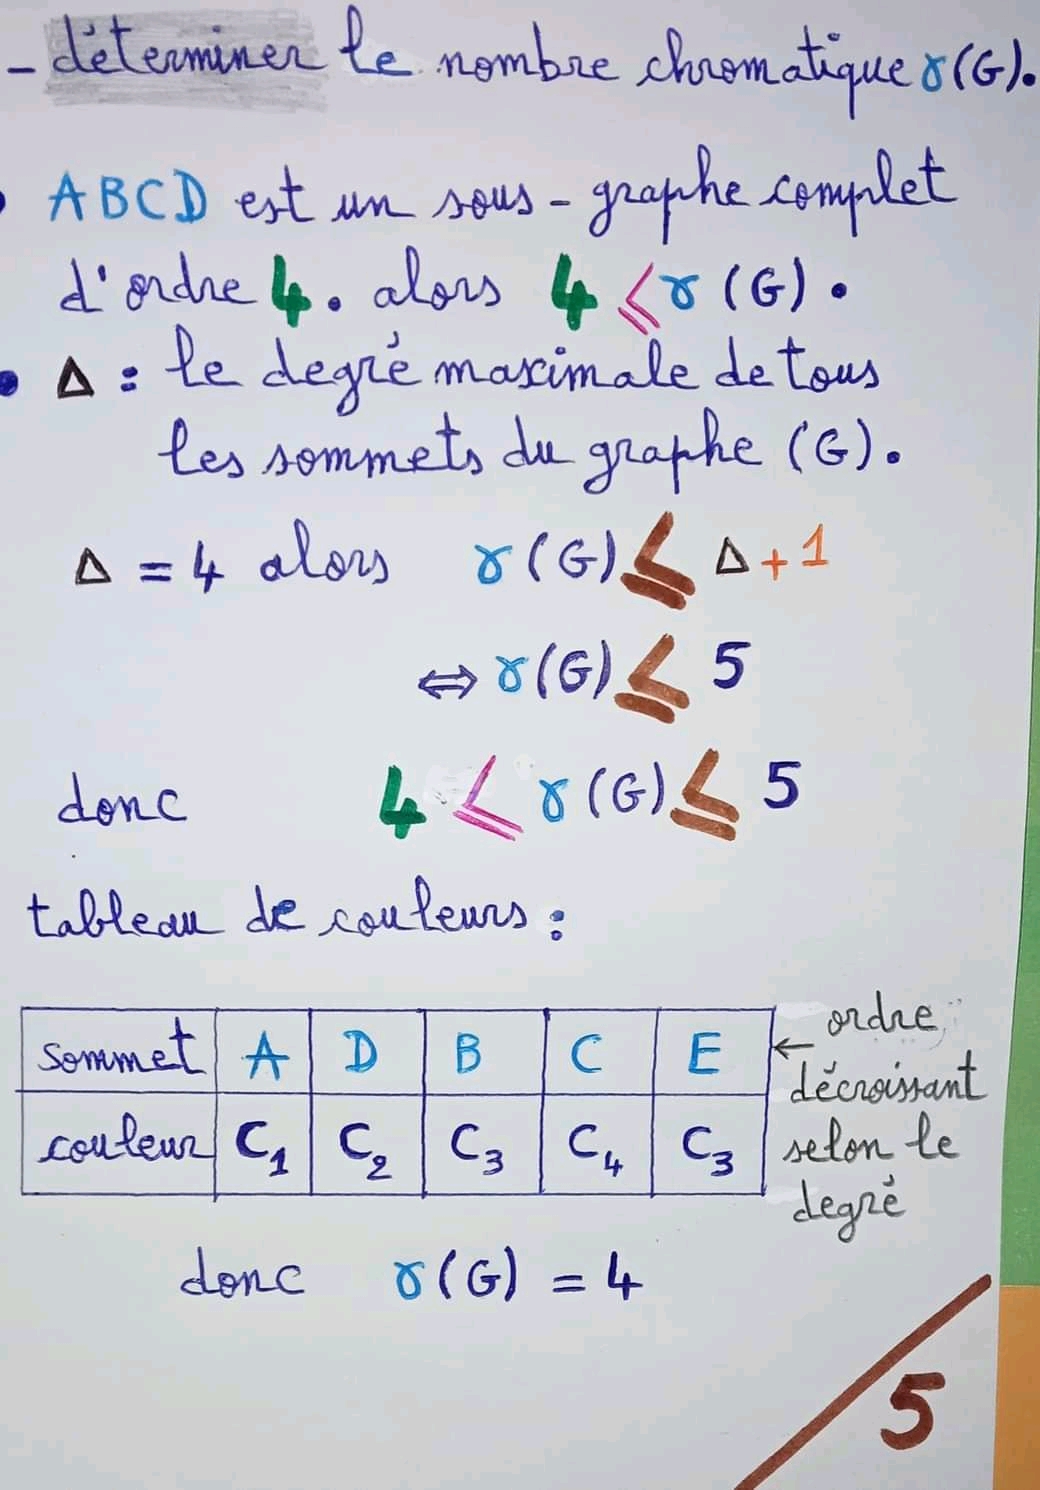 - déterminer le nombre chromatique γ(G).
• ABCD est un sous-graphe complet
d'ordre 4. alors 4 ≤ γ(G).
• Δ : le degré maximale de tous
les sommets du graphe (G).
Δ = 4 alors γ(G) ≤ Δ+1
⇔ γ(G) ≤ 5
donc 4 ≤ γ(G) ≤ 5
tableau de couleurs :
sommet A D B C E ← ordre
décroissant
couleur C₁ C₂ C₃ C₄ C₃ selon le
degré
donc γ(G) = 4
5